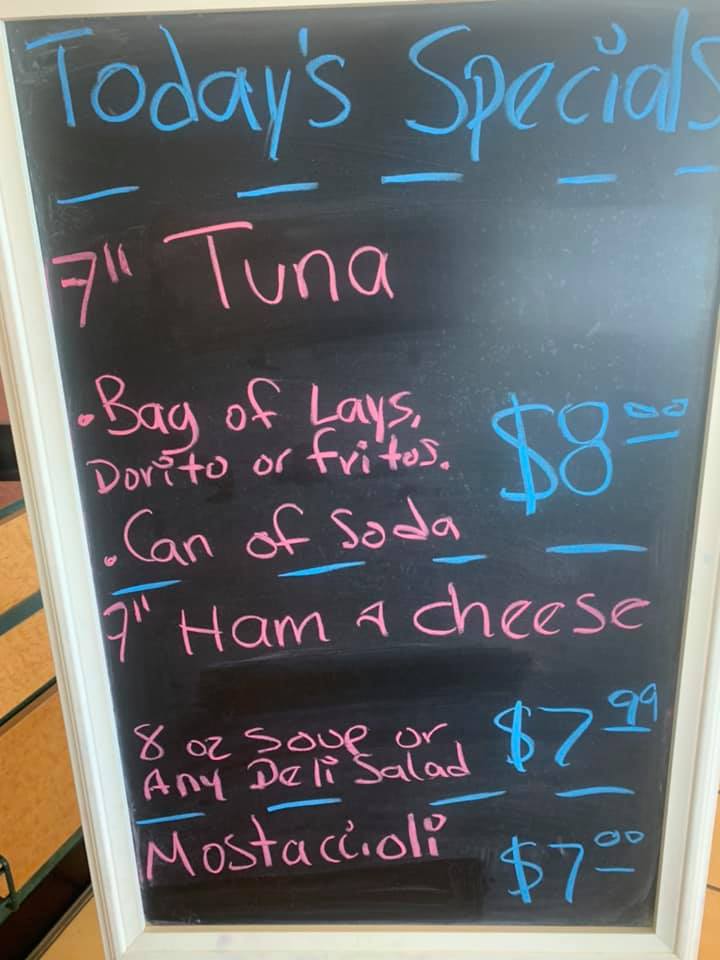 Today's Specials
7" Tuna
• Bag of Lays,
Dorito or fritos.
$8.00
• Can of Soda
7" Ham & cheese
8 oz Soup or
Any Deli Salad
$7.99
Mostaccioli
$7.00